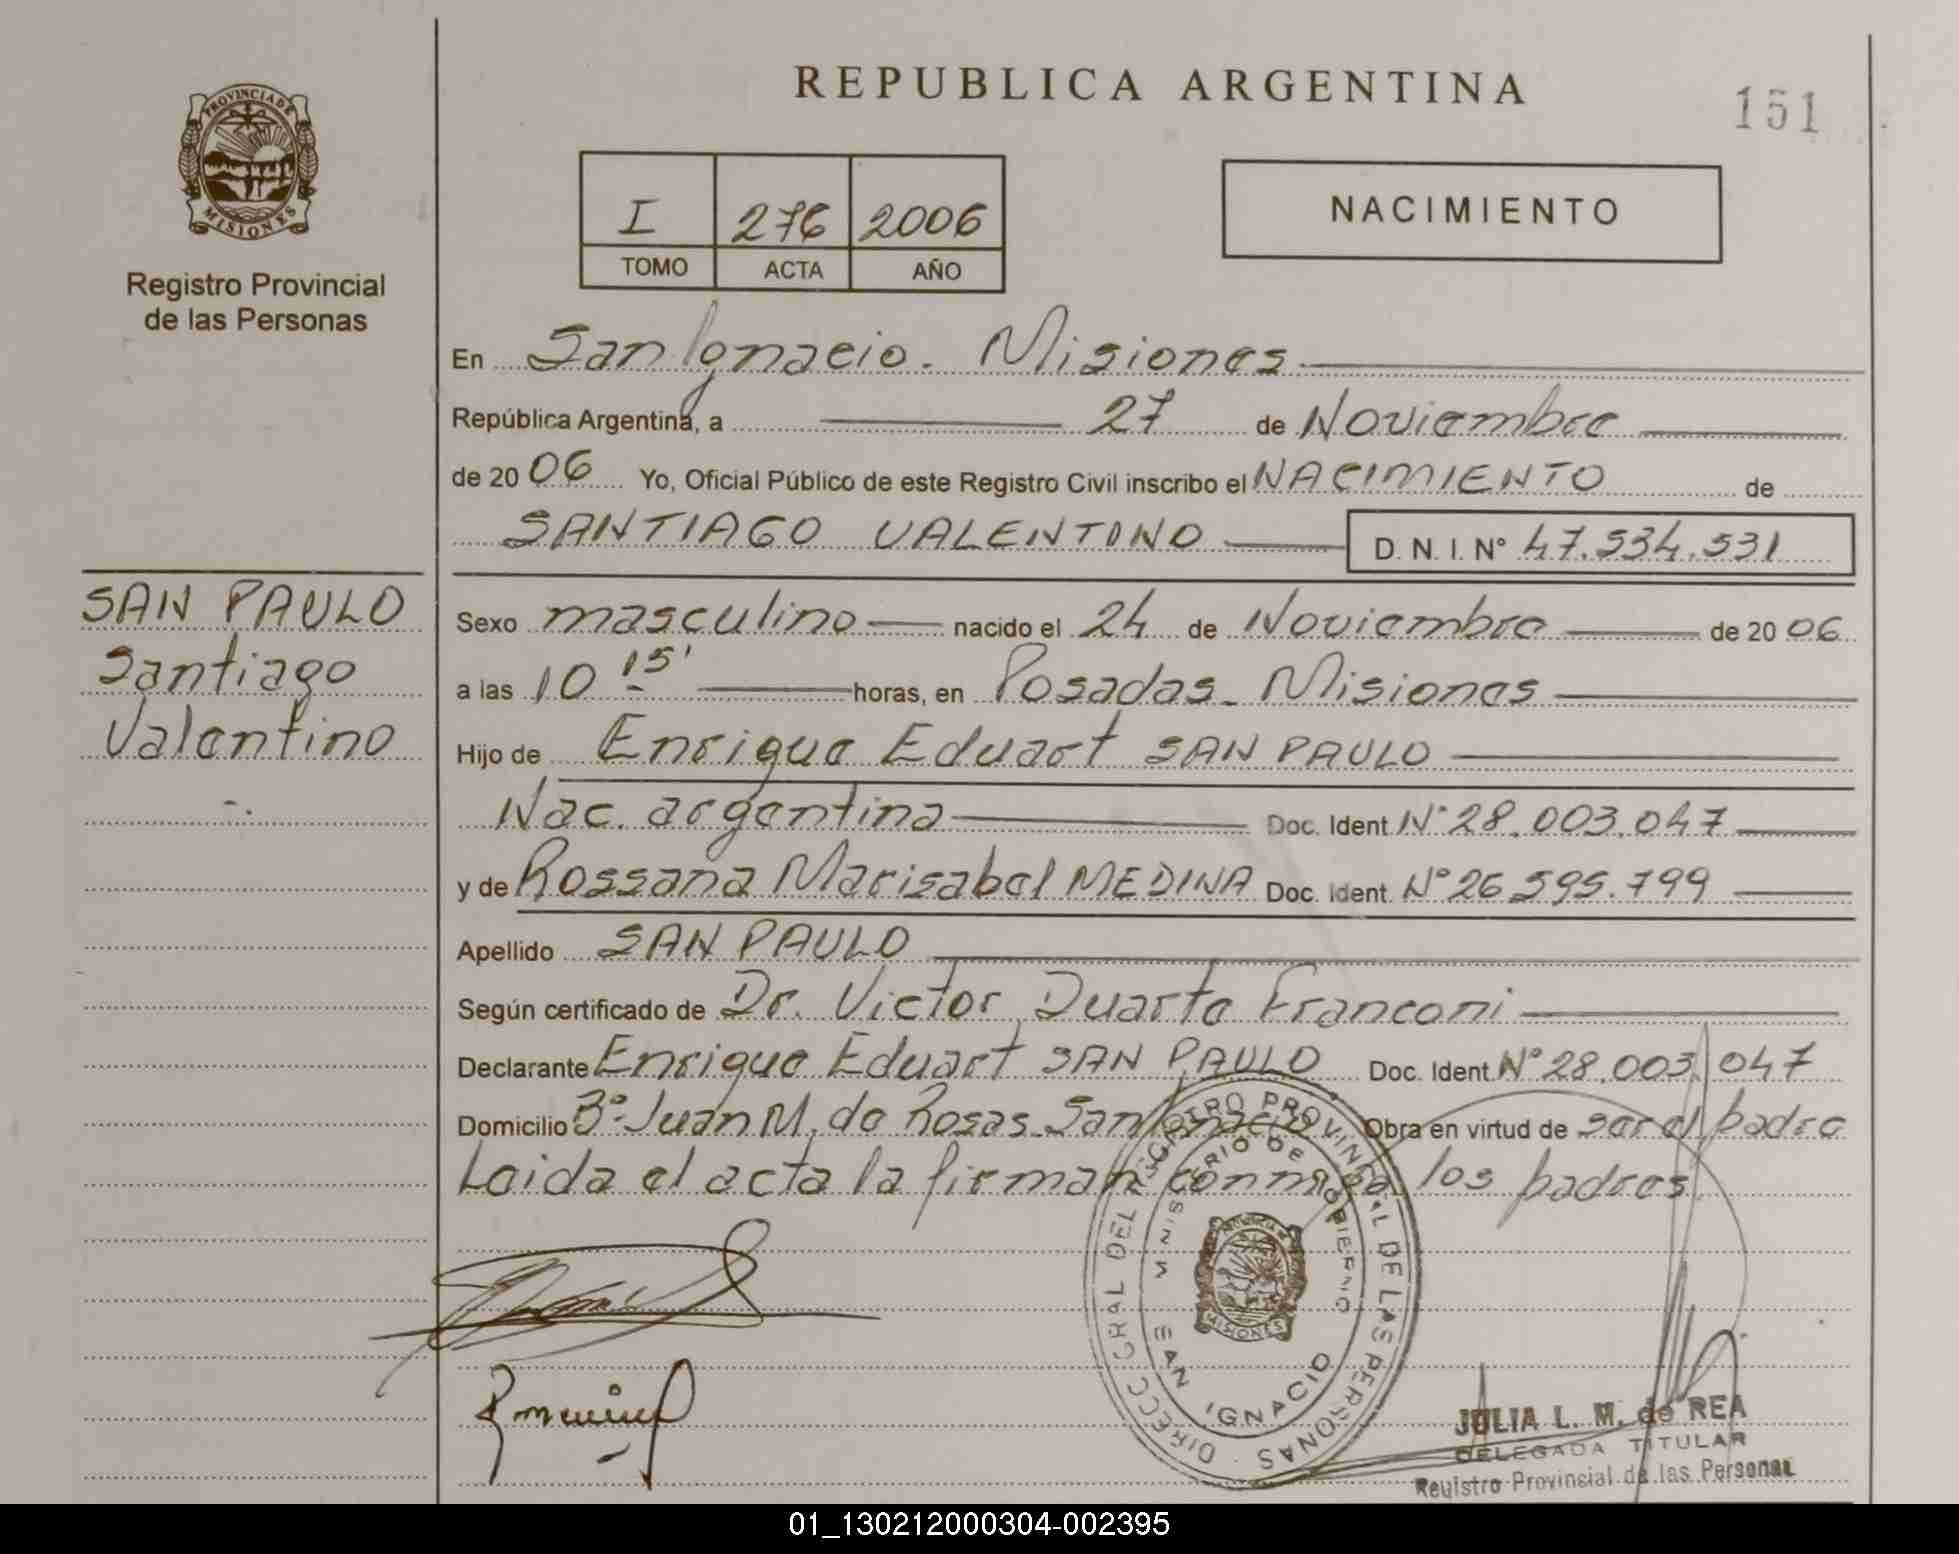 REPUBLICA ARGENTINA
151
PROVINCIA DE
MISIONES
Registro Provincial
de las Personas
I 276 2006
TOMO ACTA AÑO
NACIMIENTO
En San Ignacio. Misiones
República Argentina, a 27 de Noviembre
de 20 06 Yo, Oficial Público de este Registro Civil inscribo el NACIMIENTO de
SANTIAGO VALENTINO D. N. I. N° 47.534.531
SAN PAULO
Santiago
Valentino
Sexo masculino nacido el 24 de Noviembre de 20 06
a las 10 15' horas, en Posadas - Misiones
Hijo de Enrique Eduart SAN PAULO
Nac. argentina Doc. Ident N° 28.003.047
y de Rossana Marisabel MEDINA Doc. Ident. N° 26.595.799
Apellido SAN PAULO
Según certificado de Dr. Victor Duarte Franconi
Declarante Enrique Eduart SAN PAULO Doc. Ident. N° 28.003.047
Domicilio B°- Juan M. de Rosas - San Ignacio Obra en virtud de ser el padre
Leida el acta la firman conmigo los padres
DIRECC GRAL DEL REGISTRO PROVINCIAL DE LAS PERSONAS
MINISTERIO DE GOBIERNO
MISIONES
SAN IGNACIO
JULIA L. M. de REA
DELEGADA TITULAR
Registro Provincial de las Personas
01_130212000304-002395